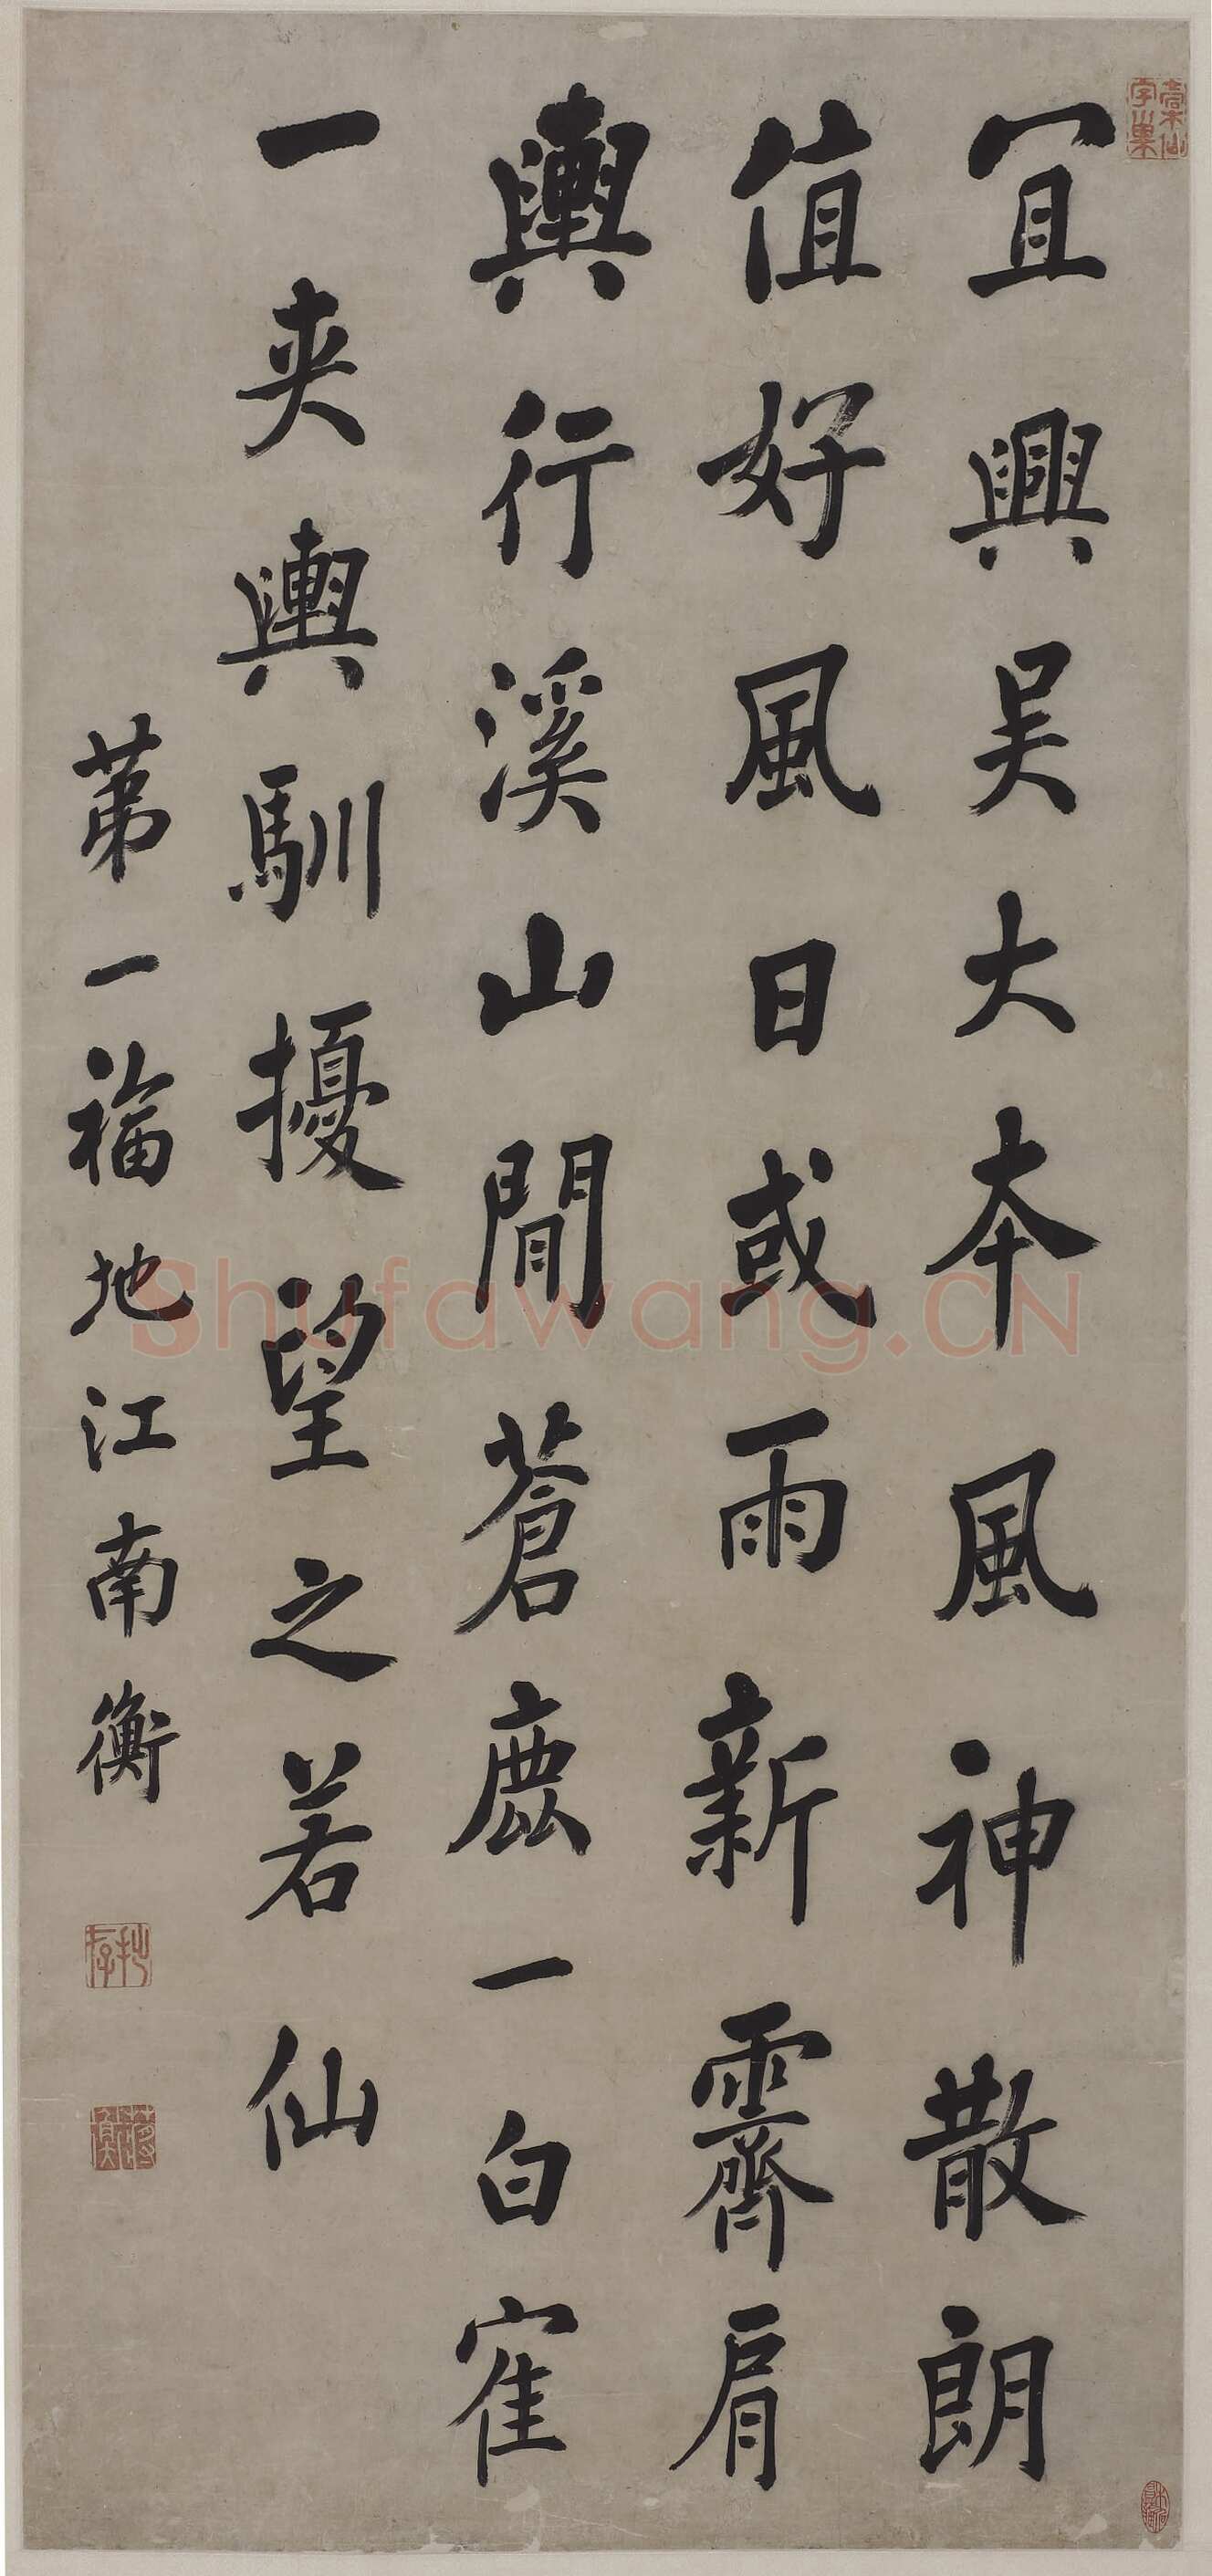 冝興吴大本風神散朗
值好風日或雨新霽肩
輿行溪山間蒼鹿一白寉
一夹輿馴擾望之若仙
苐一福地江南衡
Shufawang.CN